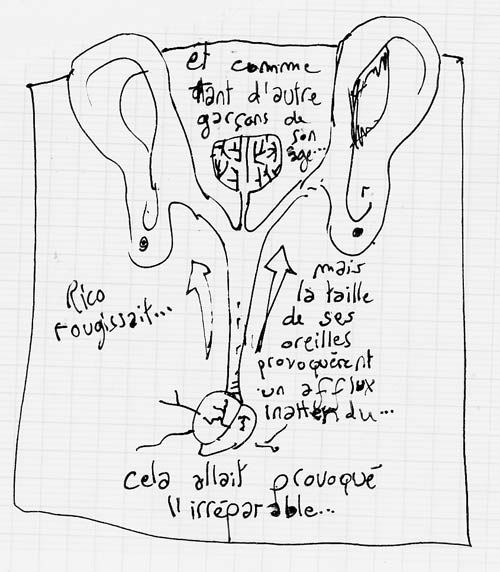 et comme
tant d'autre
garçons de
son
âge...
Rico
rougissait...
mais
la taille
de ses
oreilles
provoquèrent
un afflux
inattendu...
cela allait provoqué
l'irréparable...